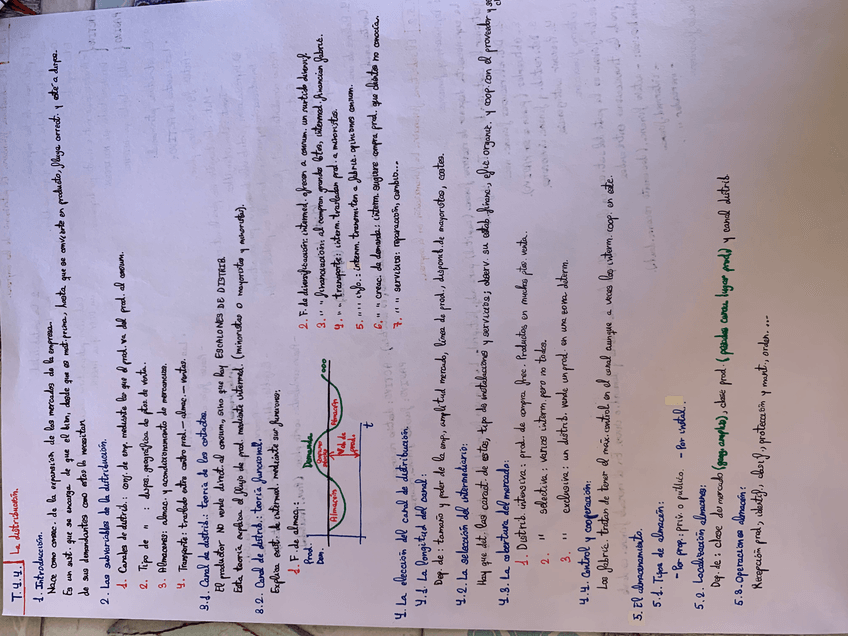 T.4.4. La distribución.
1. Introducción.
Nace como consec. de la expansión de los mercados de la empresa.
Es un sist. que se encarga de que el bien, desde que es mat. prima, hasta que se convierte en producto, llegue correct. y esté a dispo.
de sus demandantes como estos lo necesitan
2. Las subvariables de la distribución.
1. Canales de distrib.: conj. de emp. mediante las que el prod. va del prod. al consum.
2. Tipo de " : dispo. geográfica de ptos de venta.
3. Almacenes: almac. y acondicionamiento de mercancías.
4. Transporte: traslado entre centro prod. - almac. - ventas.
3.1. Canal de distrib.: teoría de los contactos.
El productor no vende direct. al consum., sino que hay ESCALONES DE DISTRIB
Esta teoría explica el flujo de prod. mediante intermed. (minoristas o mayoristas y minorist.).
3.2. Canal de distrib.: teoría funcional.
Explica exist. de intermed. mediante sus funciones:
1. F. de almac.
Prod.
Dem.
Demanda
Almacén
Almacén
Vol. de
prod.
t
2. F. de diversificación: intermed. ofrecen a consum. un surtido diversif.
3. " " financiación: al comprar grandes lotes, intermed. financian fabric.
4. " " transporte: interm. trasladan prod. a minoristas.
5. " " info.: interm. transmiten a fabric. opiniones consum.
6. " " creac. de demanda: interm. sugiere compra prod. que clientes no conocían.
7. " " servicios: reparación, cambio...
4. La elección del canal de distribución.
4.1. La longitud del canal:
Dep. de: tamaño y poder de la emp., amplitud mercado, línea de prod., disponib. de mayoristas, costes.
4.2. La selección del intermediario:
Hay que det. las caract. de estos, tipo de instalaciones y servicios; observ. su estab. financ., efic. organiz. y coop. con el proveedor y
4.3. La cobertura del mercado:
1. Distrib. intensiva: prod. de compra frec. Productos en muchos ptos venta.
2. " selectiva: varios interm. pero no todos.
3. " exclusiva: un distrib. vende un prod. en una zona determ.
4.4. Control y cooperación:
Los fabric. tratan de tener el máx. control en el canal aunque a veces los interm. coop. en este.
5. El almacenamiento.
5.1. Tipos de almacén:
- Por prop.: priv. o público. - Por instal.
5.2. Localización almacenes:
Dep. de: clase de mercado (geog. amplio), clase prod. (pesados cerca lugar prod.) y canal distrib
5.3. Operaciones almacén:
Recepción prod., identif., clasif., protección y mant., orden....